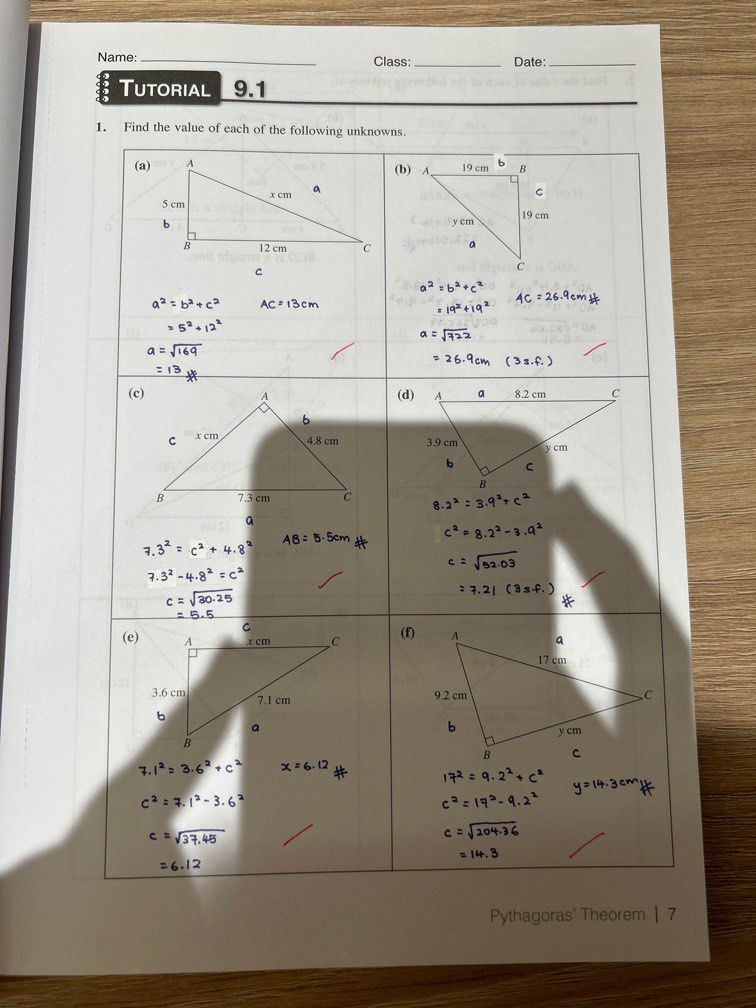 Name:
Class:
Date:
TUTORIAL 9.1
1. Find the value of each of the following unknowns.
(a)
A
5 cm
x cm
a
b
B
12 cm
C
c
a² = b² + c²
= 5² + 12²
a = √169
= 13 #
AC = 13cm
(b)
A
19 cm
b
B
c
19 cm
y cm
a
C
a² = b² + c²
= 19² + 19²
a = √722
= 26.9cm (3 s.f.)
AC = 26.9cm #
(c)
A
b
c
x cm
4.8 cm
B
7.3 cm
C
a
7.3² = c² + 4.8²
7.3² - 4.8² = c²
c = √30.25
= 5.5
AB = 5.5cm #
(d)
A
a
8.2 cm
C
3.9 cm
y cm
b
c
B
8.2² = 3.9² + c²
c² = 8.2² - 3.9²
c = √52.03
= 7.21 (3 s.f.)
#
(e)
c
A
x cm
C
3.6 cm
7.1 cm
b
a
B
7.1² = 3.6² + c²
c² = 7.1² - 3.6²
c = √37.45
= 6.12
x = 6.12 #
(f)
A
a
17 cm
9.2 cm
C
b
y cm
B
c
17² = 9.2² + c²
c² = 17² - 9.2²
c = √204.36
= 14.3
y = 14.3cm #
Pythagoras' Theorem | 7